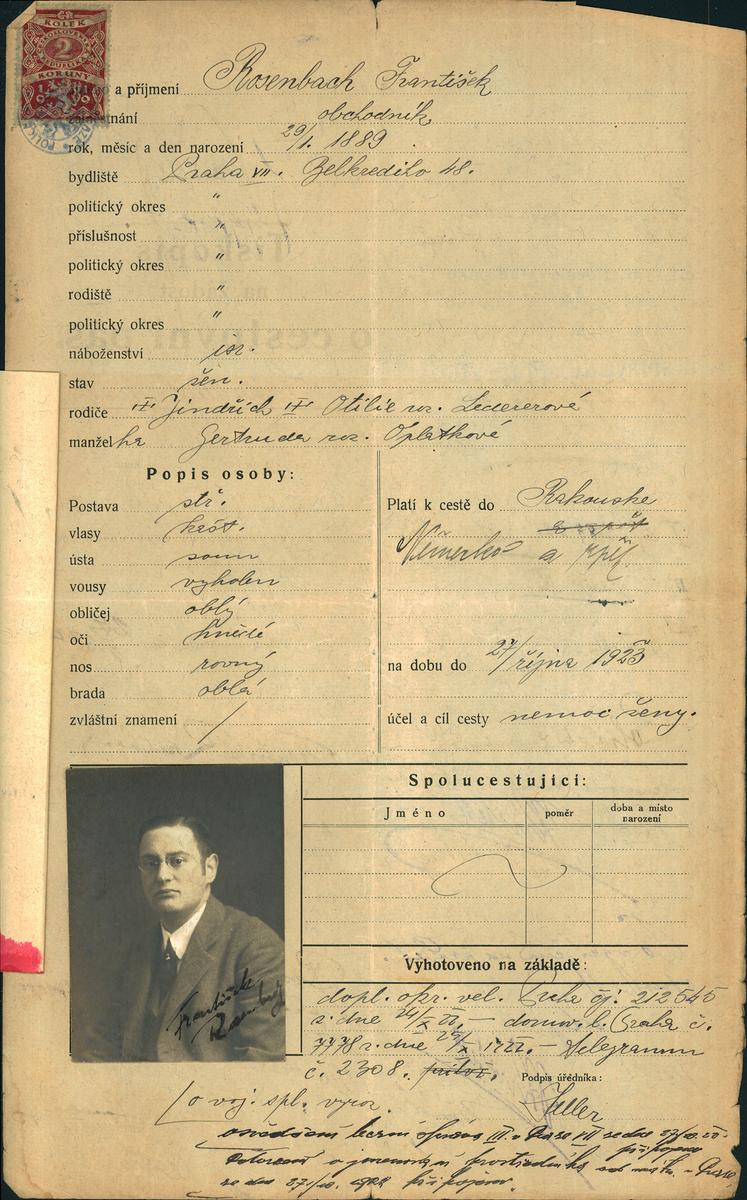 KOLEK
2
KORUNY
a příjmení Rosenbach František
obchodník
rok, měsíc a den narození 29/1. 1889
bydliště Praha VII. Belkrediho 48.
politický okres "
příslušnost "
politický okres "
rodiště "
politický okres "
náboženství isr.
stav žen.
rodiče Jindřich Otilie roz. Ledererové
manželka Gertruda roz. Oplatkové
Popis osoby:
Postava stř.
vlasy kašt.
ústa soum
vousy vyholen
obličej oblý
oči hnědé
nos rovný
brada oblá
zvláštní znamení /
Platí k cestě do Rakouska
Německo a zpět.
na dobu do 27/ října 1923
účel a cíl cesty nemoc ženy.
Spolucestující:
Jméno poměr doba a místo narození
František
Vyhotoveno na základě:
dopl. opr. vel. Praha čj. 212545
z dne 24/X 22. – domov. l. Praha č.
7778 z dne 1922. – telegramm
č. 2308.
Podpis úředníka:
o voj. spl. vyroz.